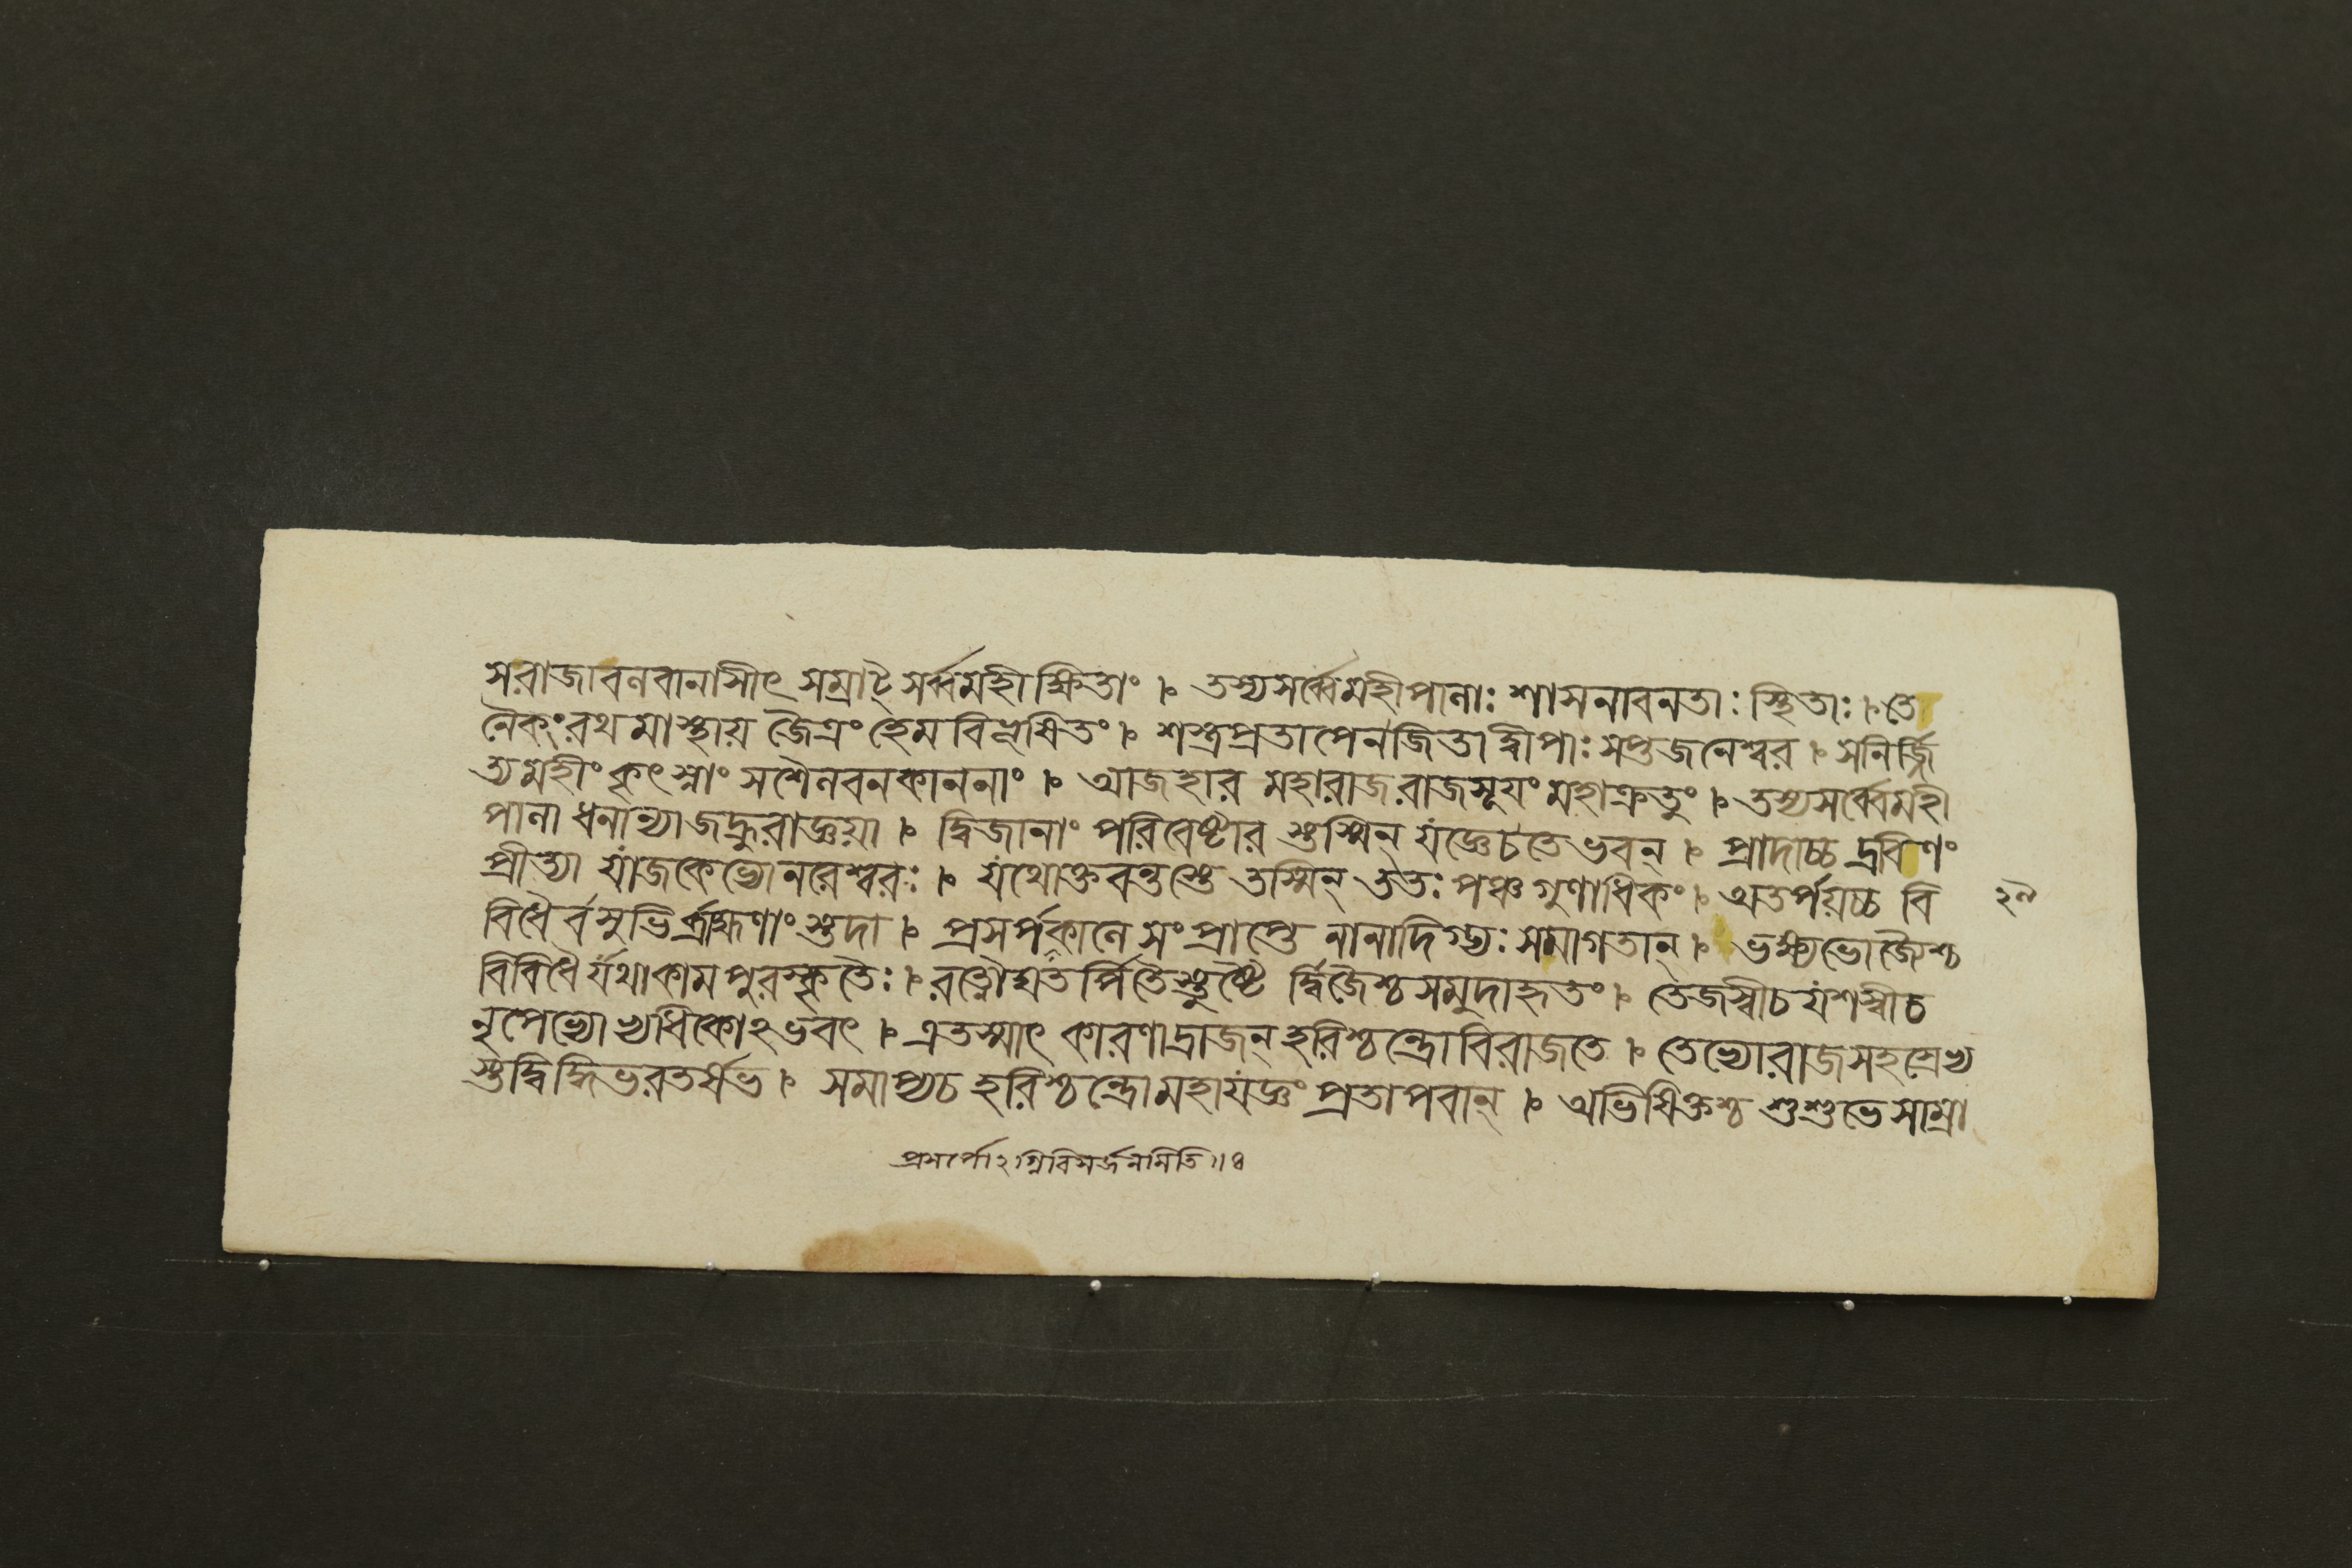 সরাজাবলবানাসীৎ সম্রাট্ সর্ব্বমহীক্ষিতাং । তস্যসর্ব্বেমহীপালাঃ শাসনাবনতাঃ স্থিতাঃ । তে
নৈকংরথমাস্থায় জৈত্রংহেমবিভূষিতং । শস্ত্রপ্রতাপেনজিতাদ্বীপাঃ সপ্তজনেশ্বর । সনির্জ্জি
ত্যমহীংকৃৎস্নাং সশৈলবনকাননাং । আজহার মহারাজরাজসূয়ংমহাক্রতুং । তস্যসর্ব্বেমহী
পালা ধনান্যাজহ্রুরাজ্ঞয়া । দ্বিজানাং পরিবেষ্টার স্তস্মিন্ যজ্ঞেচতেভবন্ । প্রাদাচ্চ দ্রবিণং
প্রীত্যা যাজকেভ্যোনরেশ্বরঃ । যথোক্তবন্তস্তে তস্মিন্ ততঃ পঞ্চগুণাধিকং । অতর্পয়চ্চ বি
বিধৈর্বসুভির্ব্রাহ্মণাংস্তদা । প্রসর্পকালে সংপ্রাপ্তে নানাদিগ্ভ্যঃ সমাগতান্ । ভক্ষ্যভোজ্যৈশ্চ
বিবিধৈ র্যথাকামপুরস্কৃতৈঃ । রত্নৌঘতর্পিতৈস্তুষ্টৈ র্দ্বিজৈশ্চসমুদাহৃতং । তেজস্বীচযশস্বীচ
নৃপেভ্যোভ্যধিকোঽভবৎ । এতস্মাৎ কারণাদ্রাজন্ হরিশ্চন্দ্রোবিরাজতে । তেভ্যোরাজসহস্রেভ্য
স্তদ্বিদ্ধিভরতর্ষভ । সমাপ্যচ হরিশ্চন্দ্রোমহাযজ্ঞং প্রতাপবান্ । অভিষিক্তশ্চ শুশুভেসাম্রা
প্রসর্পোঽগ্নিবিসর্জনমিতি॥৪